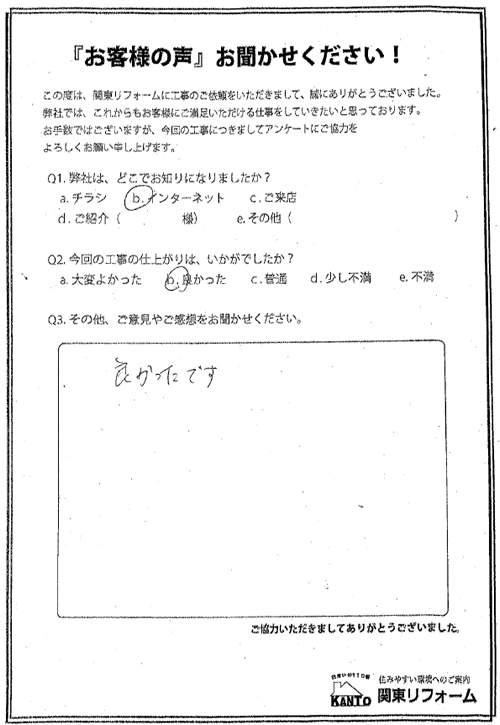 『お客様の声』お聞かせください！
この度は、関東リフォームに工事のご依頼をいただきまして、誠にありがとうございました。
弊社では、これからもお客様にご満足いただける仕事をしていきたいと思っております。
お手数ではございますが、今回の工事につきましてアンケートにご協力を
よろしくお願い申し上げます。
Q1. 弊社は、どこでお知りになりましたか？
a. チラシ b. インターネット c. ご来店
d. ご紹介（ 様） e. その他（ ）
Q2. 今回の工事の仕上がりは、いかがでしたか？
a. 大変よかった b. 良かった c. 普通 d. 少し不満 e. 不満
Q3. その他、ご意見やご感想をお聞かせください。
良かったです
ご協力いただきましてありがとうございました。
住まいの110番
KANTO
住みやすい環境へのご案内
関東リフォーム